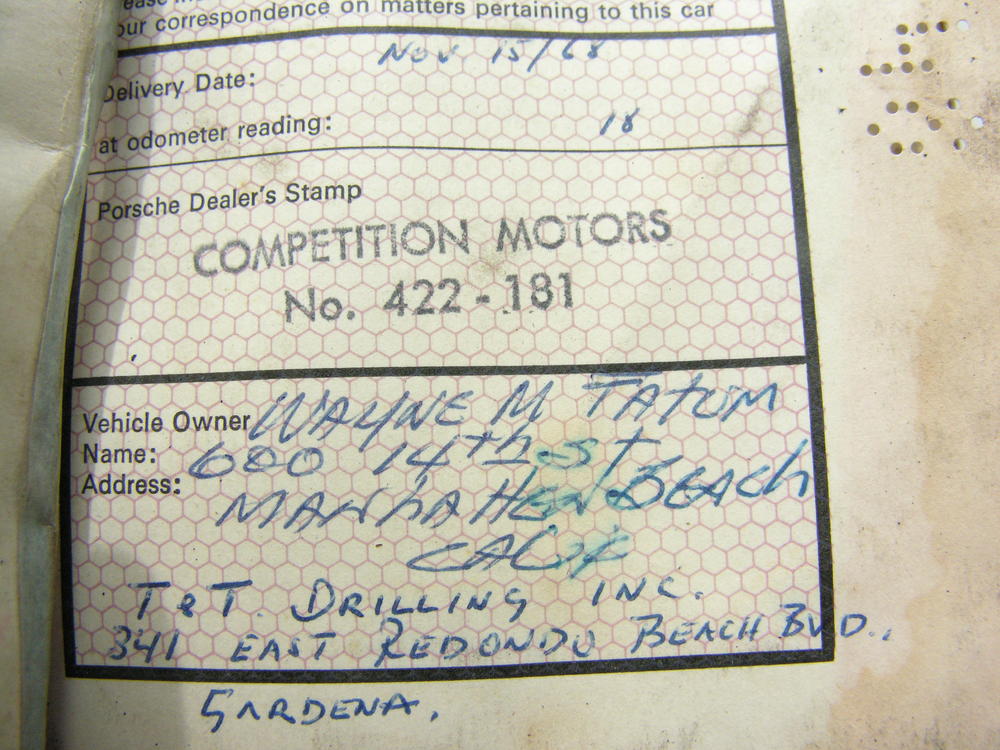 our correspondence on matters pertaining to this car
Delivery Date: Nov 15/68
at odometer reading: 18
Porsche Dealer's Stamp
COMPETITION MOTORS
No. 422-181
Vehicle Owner WAYNE M TATUM
Name: 600 14th St
Address: MANHAHEN BEACH
CALIF
T & T. DRILLING INC.
341 EAST REDONDO BEACH BVD.,
GARDENA.